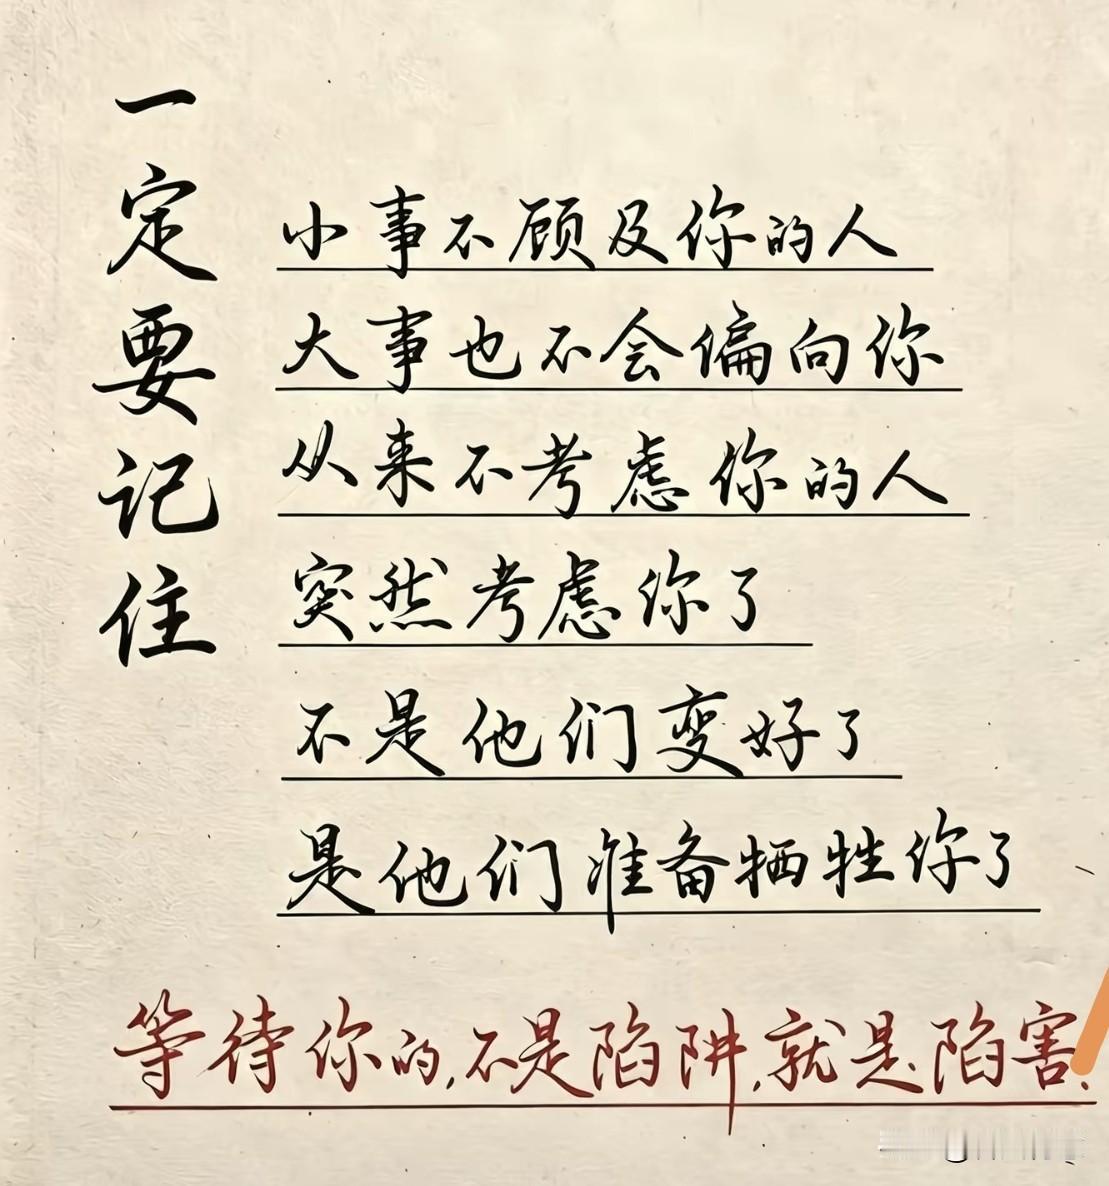 一定要记住
小事不顾及你的人
大事也不会偏向你
从来不考虑你的人
突然考虑你了
不是他们变好了
是他们准备牺牲你了
等待你的,不是陷阱,就是陷害.